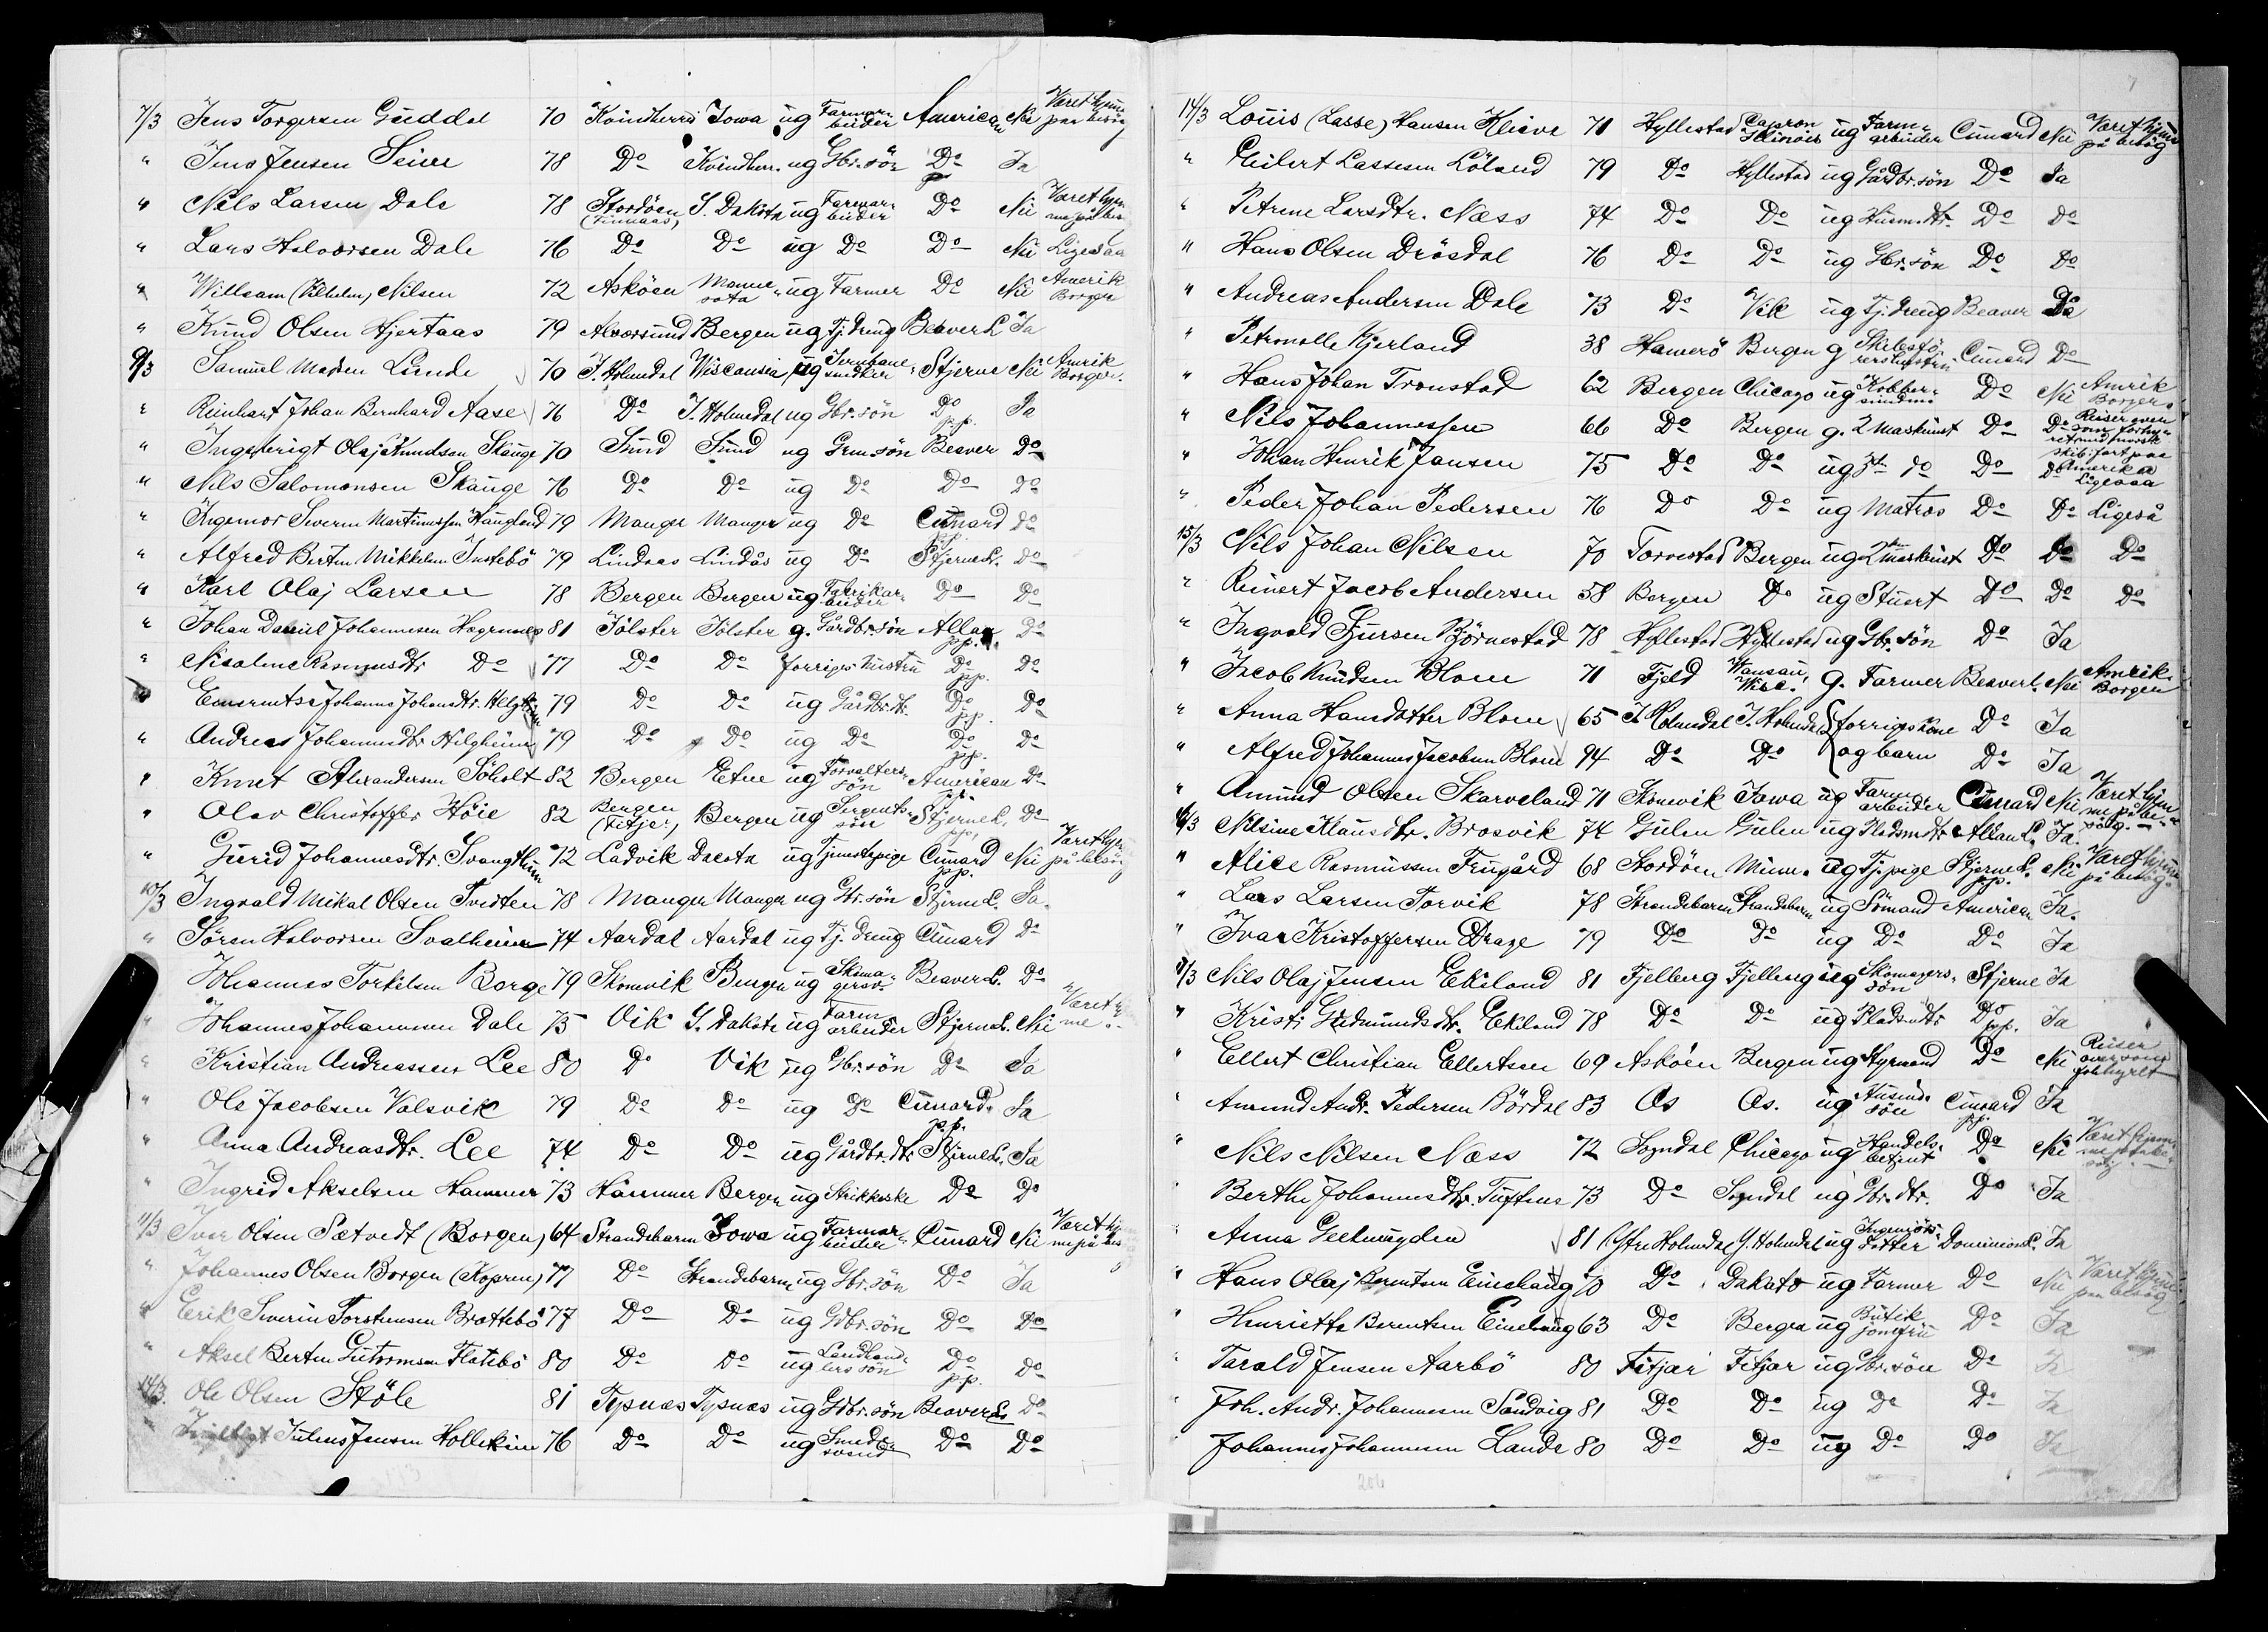 7/3 Jens Torgersen Guddal 70 Kvindherred Iowa ug Farmarbeider American Nei Været hjemme paa besög
" Jens Jensen Seim 78 Do Kvindher. ug Gbr.sön Do Ja
" Nels Larsen Dale 78 Stordöen (Finnaas) S. Dakota ug Farmarbeider Do Nei Været hjemme på bes
" Lars Halvorsen Dale 76 Do Do ug Do Do Nei Ligesaa
" William (Vilhelm) Nilsen 72 Asköen Minnesota ug Farmer Do Nei Amerik Borger
" Knud Olsen Hjertaas 79 Alversund Bergen ug Tj. dreng Beaver L Ja
9/3 Samuel Madsen Lunde 70 Y. Holmdal Wisconsin ug Jernbanesnedker Stjerne Nei Amrik Borger.
" Reinhart Johan Bernhard Aase 76 Do Y. Holmedal ug Gbr.sön Do p.p. Ja
" Ingebrigt Olaj Knudsen Skauge 70 Sund Sund ug Grm.sön Beaver Do
" Nils Salomonsen Skauge 76 Do Do ug Do Do Do
" Ingemor Severin Martinussen Haugland 79 Manger Manger ug Do Cunard p.p. Do
" Alfred Bertin Mikkelsen Instebö 79 Lindaas Lindås ug Do Stjernel. Do
" Karl Olaj Larsen 78 Bergen Bergen ug Fabrikarbeider Do Do
" Johan Daniel Johannesen 81 Jölster Jölster g. Gårdbr.sön Allan p.p. Do
" Nicoline Rasmusdtr Do 77 Do Do forriges Hustru Do pp. Do
" Johanne Johansdtr. 79 Do Do ug Gårdbr.dt. Do p.p. Do
" Andrea Johannesdtr Helgheim 79 Do Do ug Do Do pp. Do
" Knut Alexandersen Söholt 82 Bergen Etne ug Forvalterssön American p.p. Do
" Olav Christoffer Höie 82 Bergen (Fitjar) Bergen ug Sergentssön Stjernel. pp. Do
" Gurid Johannesdtr. Svangthun 72 Ladvik Dacota ug Tjenestepige Cunard pp. Nei Været hjem på besög
10/3 Ingvald Mikal Olsen Tveiten 78 Manger Manger ug Gbr.sön Stjerne L. Ja.
" Sören Halvorsen Svalheim 74 Aardal Aardal ug Tj. dreng Cunard Do
Johannes Torkelsen Borge 79 Skonevik Bergen ug Skomagersv. Beaver L. Do
" Johannes Johannesen Dale 75 Vik S. Dakota ug Farmarbeider Stjernel. Nei Været hjemme
" Kristian Andreassen Lee 80 Do Vik ug Gbr.sön Do Ja
" Ole Jacobsen Valsvik 79 Do Do ug Do Cunard p.p. Ja
" Anna Andreasdtr. Lee 74 Do Do ug Gårdbr.dtr Stjernel. Ja
" Ingrid Akselsen Hammer 73 Hammer Bergen ug Strikkerske Do Do
11/3 Ivar Olsen Sætvedt (Borgen) 64 Strandebarm Iowa ug Farmarbeider Cunard Nei Været hjemme på bes
" Johannes Olsen Borgen (Kopren) 77 Do Strandebarm ug Gbr.sön Do Ja
" Eerik Severin Torstensen Brattebö 77 Do Do ug Gdbr.sön Do Do
" Aksel Bertin Guttormsen Flatebö 80 Do Do ug Landhandlerssön Do pp. Do
14/3. Ole Olsen Stöle 81 Tysnæs Tysnæs ug Gdbr.sön Beaver L Do
Julius Jensen Hollekim 76 Do Do ug Smedesvend Do Do
7
14/3 Louis (Lasse) Hansen Kleive 71 Hyllestad Capron Illinois ug Farmarbeider Cunard Nei Været hjemme på besög
" Eilert Lassesen Lölend 79 Do Hyllestad ug Gårdbr.sön Do Ja
" Petrine Larsdtr. Næss 74 Do Do ug Husm.dtr. Do Do
" Hans Olsen Drösdal 76 Do Do ug Gbr.sön Do Do
" Andreas Andersen Dale 73 Do Vik ug Tj. dreng Beaver Do
" Petronelle Kjerland 38 Hamerö Bergen g Skibsförershustru Cunard Do
" Hans Johan Tronstad 62 Bergen Chicago ug Kobbersmed Do Nei Amrik Borger
" Nils Johannessen 66 Do Bergen g. 2 Maskinist Do Do Reiser over som forhyret med norsk skib: fart paa Amerika
" Johan Henrik Jansen 75 Do Do ug 3die do Do Do Ligesaa
" Peder Johan Pedersen 76 Do Do ug Matros Do Do Ligeså
15/3 Nils Johan Nilsen 70 Torvestad Bergen ug 2den maskinist Do Do Do
" Reinert Jacob Andersen 58 Bergen Do ug Stuert Do Do Do
" Ingvald Sjursen Björnestad 78 Hyllestad Hyllestad ug Gbr.sön Do Ja
" Jacob Knudsen Blom 71 Fjeld Wausau, Wisc. g. Farmer Beaverl. Nei Amrik. Borger
" Anna Hansdatter Blom 65 Y. Holmdal Y. Holmdal forriges Kone Do Ja
" Alfred Johannes Jacobsen Blom 94 Do Do og barn Do Ja
" Amund Olsen Skarveland 71 Skonevik Iowa ug Farmarbeider Cunard Nei Været hjemme på besög.
16/3 Nilsine Klausdtr. Brosvik 74 Gulen Gulen ug Pladsmdtr Allan L. Ja.
" Alice Rasmussen Frugård 68 Stordöen Minn. ug Tj. pige Stjernel. pp. Nei Været hjemme på besög
" Lars Larsen Torvik 78 Strandebarm Strandebarm ug Sömand American Ja.
" Ivar Kristoffersen Drage 79 Do Do ug Do Do Ja
17/3 Nils Olaj Jensen Ekeland 81 Fjelberg Fjelberg ug Skomagerssön Stjerne Ja
" Kristi Gudmundsdtr. Ekeland 78 Do Do ug Pladsmdtr Do pp. Ja
" Ellert Christian Ellertsen 69 Asköen Bergen ug Styrmand Do Nei Reiser over som forhyret
" Amund Andr. Pedersen Bördal 83 Os Os. ug Husmd.sön Cunard pp. Ja
" Nils Nilsen Næss 72 Sogndal Chicago ug Handelsbetjent Do Nei Været hjemme på besög
" Berthe Johannesdtr. Tuftene 73 Do Sogndal ug Gbr.dtr. Do Ja
" Anna Geelmuyden 81 Ytre Holmdal Y. Holmdal ug Ingeniörsdatter Dominion L. Ja
" Hans Olaj Berentsen Einehaug 70 Do Dakota ug Farmer Do Nei Været hjemme paa besög
" Henriette Berentsen Einehaug 63 Do Bergen ug Butikjomfru Do Ja
" Tarald Jensen Aarbö 80 Fitjar Fitjar ug Gbr.sön Do Ja
" Joh. Andr. Johannesen Sandvig 81 Do Do ug Do Do Ja
" Johannes Johannesen Lande 80 Do Do ug Do Do Ja
206